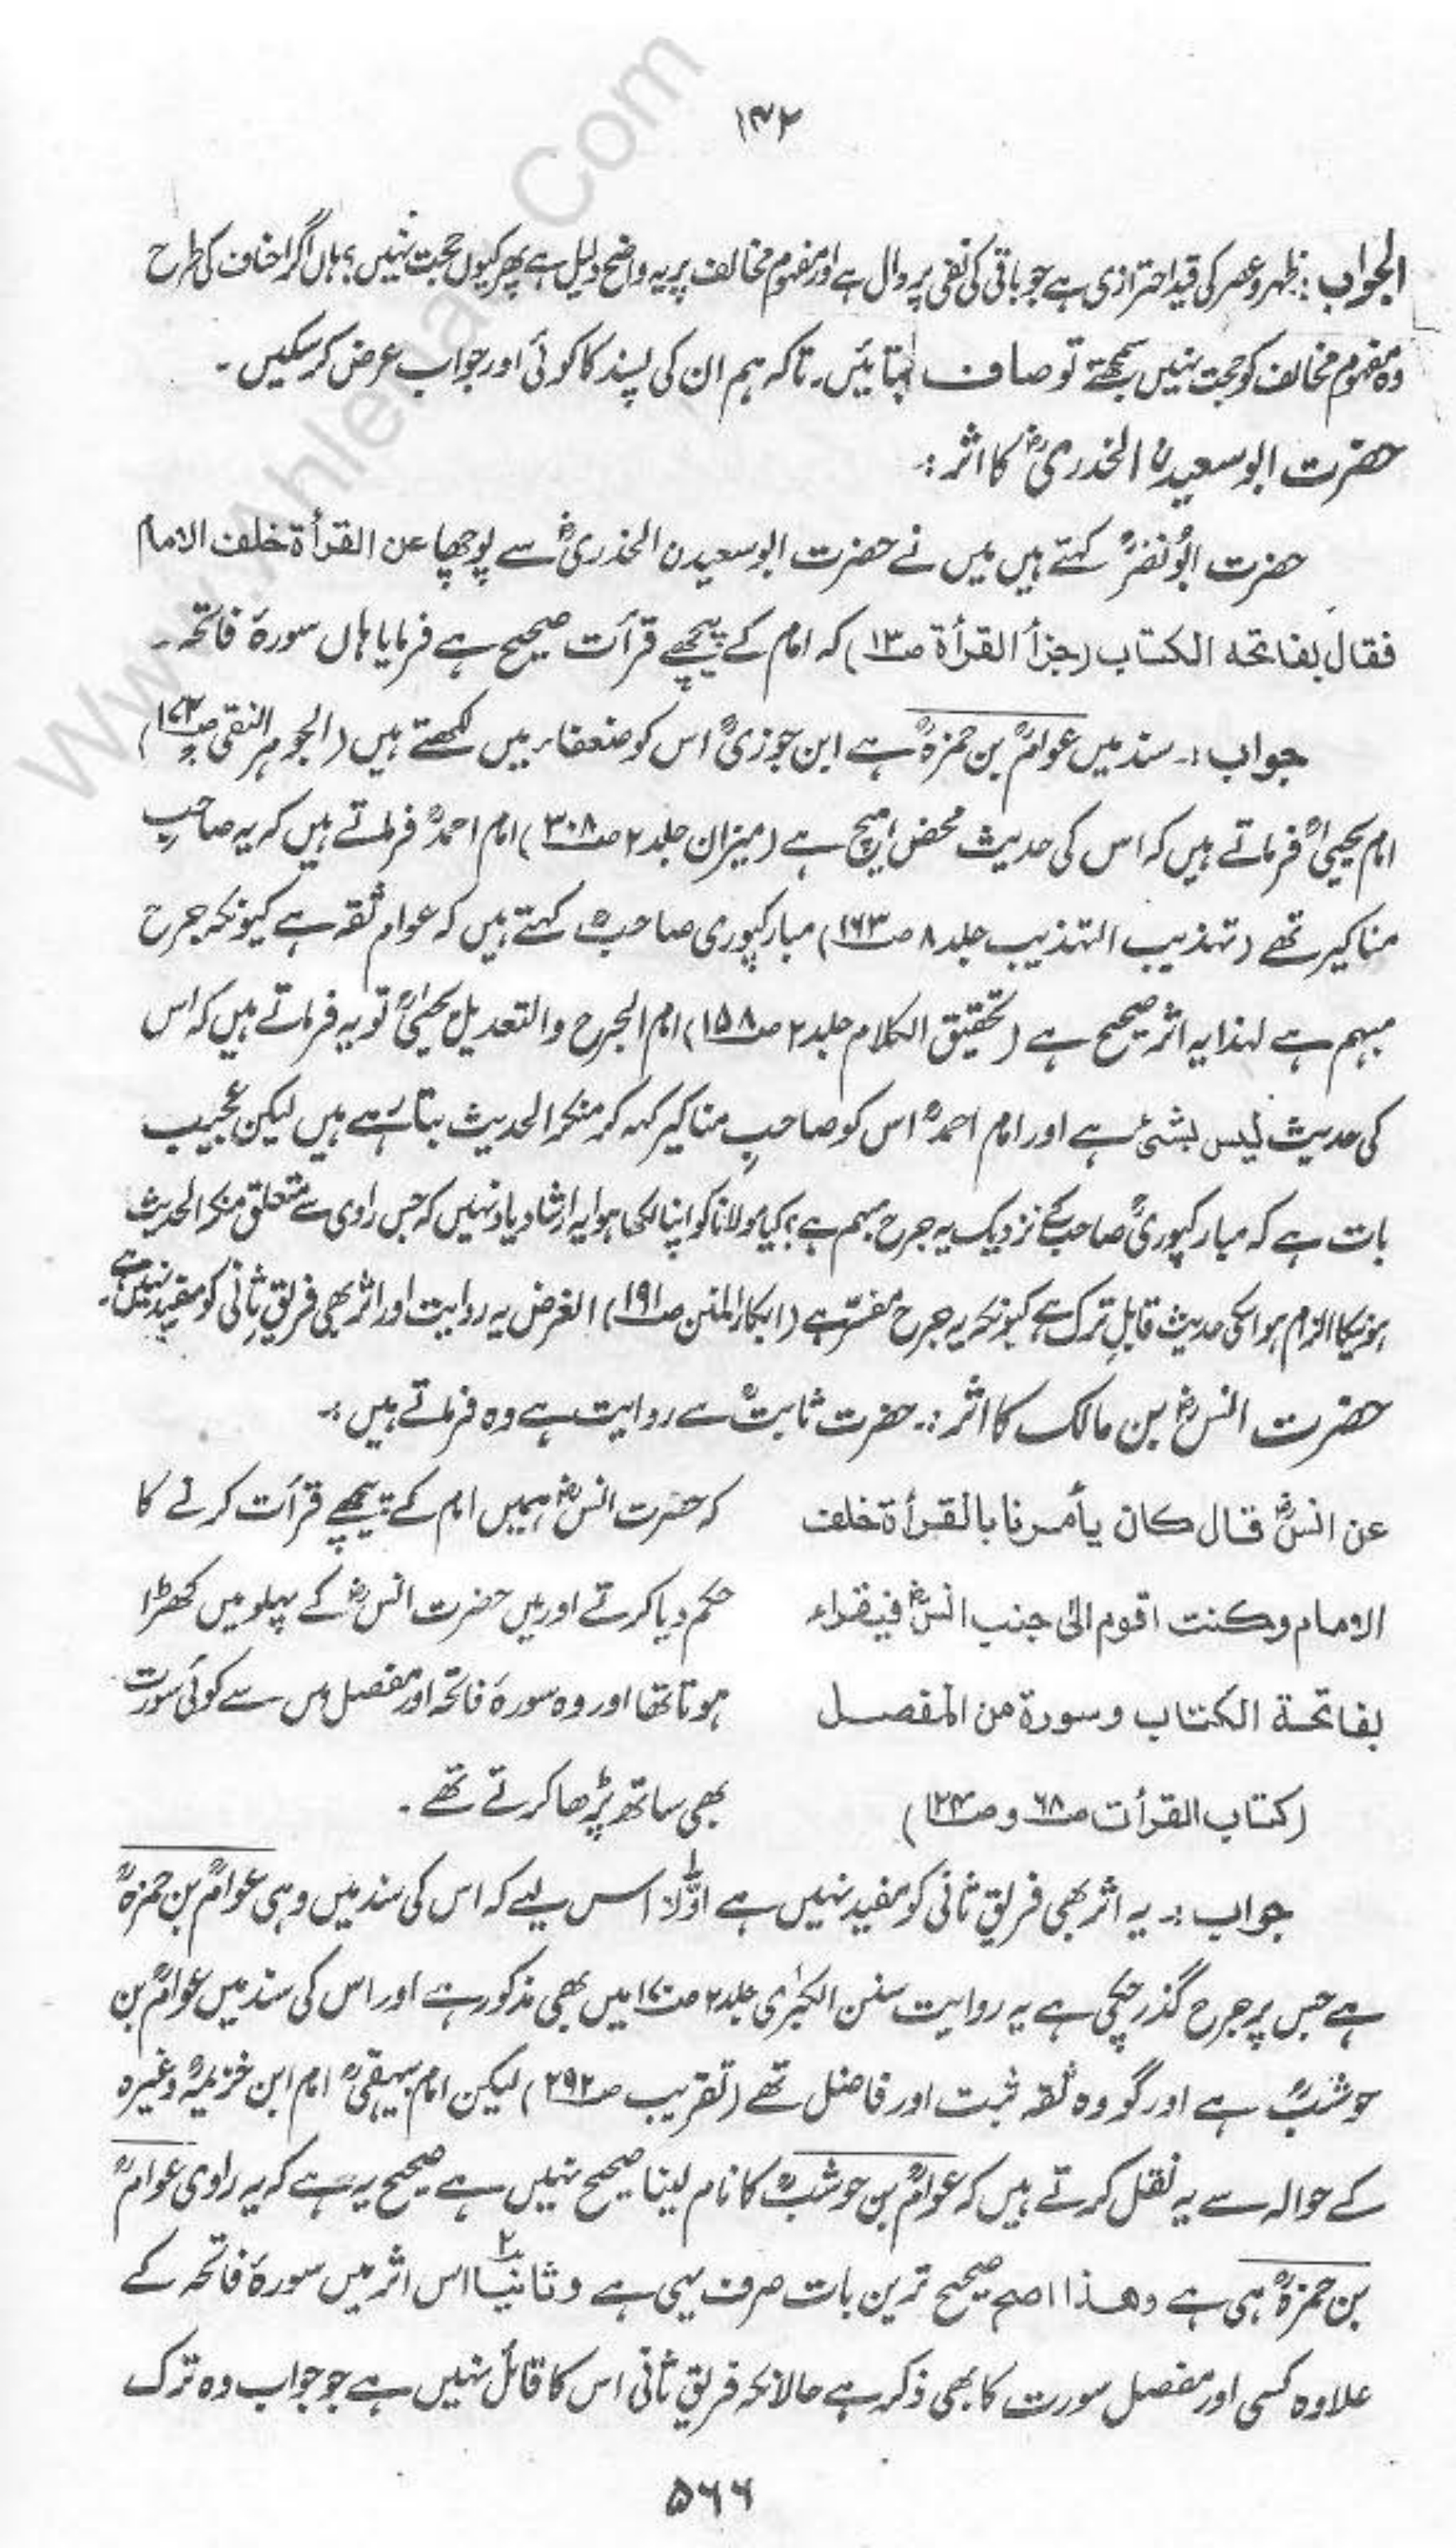 ۱۴۲
الجواب : ظہر و عصر کی قید احترازی ہے جو باقی کی نفی پر دال ہے اور مفہوم مخالف پر یہ واضح دلیل ہے پھر کیوں حجت نہیں؟ ہاں اگر احناف کی طرح
وہ مفہوم مخالف کو حجت نہیں سمجھتے تو صاف بتائیں۔ تاکہ ہم ان کی پسند کا کوئی اور جواب عرض کر سکیں ۔
حضرت ابو سعیدن الخدریؓ کا اثر :۔
حضرت ابو نضرہؒ کہتے ہیں میں نے حضرت ابو سعیدن الخذریؓ سے پوچھا عن القرأة خلف الامام
فقال بفاتحه الكتاب (جزأ القرأة ص۱۳) کہ امام کے پیچھے قرأت صحیح ہے فرمایا ہاں سورۂ فاتحہ ۔
جواب :۔ سند میں عوامؒ بن حمزہؒ ہے ابن جوزیؒ اس کو ضعفاء میں لکھتے ہیں (الجوہر النقی
امام یحییٰؒ فرماتے ہیں کہ اس کی حدیث محض ہیچ ہے (میزان جلد ۲ ص۳۰۸) امام احمدؒ فرماتے ہیں کہ یہ صاحبِ
مناکیر تھے (تہذیب التہذیب جلد ۸ ص۱۶۳) مبارکپوری صاحبؒ کہتے ہیں کہ عوام ثقہ ہے کیونکہ جرح
مبہم ہے لہذا یہ اثر صحیح ہے (تحقیق الکلام جلد ۲ ص۱۵۸) امام الجرح والتعدیل یحییٰؒ تو یہ فرماتے ہیں کہ اس
کی حدیث لیس بشئ ہے اور امام احمدؒ اس کو صاحبِ مناکیر کہہ کر منکر الحدیث بتا رہے ہیں لیکن عجیب
بات ہے کہ مبارکپوریؒ صاحب کے نزدیک یہ جرح مبہم ہے؟ کیا مولانا کو اپنا لکھا ہوا یہ ارشاد یاد نہیں کہ جس راوی سے متعلق منکر الحدیث
ہونیکا الزام ہو اسکی حدیث قابلِ ترک ہے کیونکہ یہ جرح مفسّر ہے (ابکار المنن ص۱۹۱) الغرض یہ روایت اور اثر بھی فریقِ ثانی کو مفید نہیں ہے۔
حضرت انسؓ بن مالک کا اثر :۔ حضرت ثابتؒ سے روایت ہے وہ فرماتے ہیں :۔
عن انسؓ قال كان يأمرنا بالقرأة خلف کہ حضرت انسؓ ہمیں امام کے پیچھے قرأت کرنے کا
الامام وكنت اقوم الى جنب انسؓ فيقراء حکم دیا کرتے اور میں حضرت انسؓ کے پہلو میں کھڑا
بفاتحة الكتاب وسورة من المفصل ہوتا تھا اور وہ سورۂ فاتحہ اور مفصل میں سے کوئی سورت
(كتاب القرأت ص۶۸ و ص۱۲۴) بھی ساتھ پڑھا کرتے تھے ۔
جواب :۔ یہ اثر بھی فریقِ ثانی کو مفید نہیں ہے اوّلاً اس لیے کہ اس کی سند میں وہی عوامؒ بن حمزہؒ
ہے جس پر جرح گذر چکی ہے یہ روایت سنن الکبرٰی جلد ۲ ص۱۷۰ میں بھی مذکور ہے اور اس کی سند میں عوامؒ بن
حوشبؒ ہے اور گو وہ ثقہ ثبت اور فاضل تھے (تقریب ص۲۹۲) لیکن امام بیہقیؒ امام ابن خزیمہؒ وغیرہ
کے حوالہ سے یہ نقل کرتے ہیں کہ عوامؒ بن حوشبؒ کا نام لینا صحیح نہیں ہے صحیح یہ ہے کہ یہ راوی عوامؒ
بن حمزہؒ ہی ہے وھذا اصح صحیح ترین بات صرف یہی ہے وثانیاً اس اثر میں سورۂ فاتحہ کے
علاوہ کسی اور مفصل سورت کا بھی ذکر ہے حالانکہ فریقِ ثانی اس کا قائل نہیں ہے جو جواب وہ ترک
۵۶۶